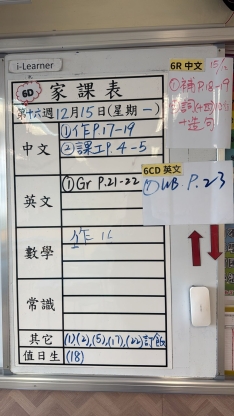 i-Learner
6D 家課表
第十六週12月15日(星期一)
中文
①作P.17-19
②課工P.4-5
英文
①Gr P.21-22
數學
作 16
常識
其它
(1),(2),(5),(17),(22)訂飯
值日生
(18)
6R 中文 15/12
①補P.18-19
②詞(十四)
+造句
6CD 英文
①WB P.23